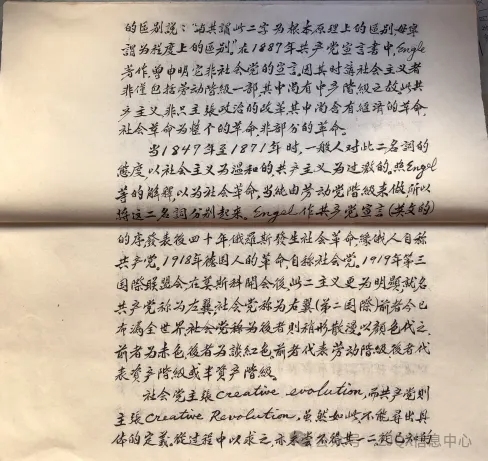 的區别說："与其謂此二字为根本原理上的區别毋寧
謂为程度上的區别。"在1887年共产党宣言書中，Engle
著作，曾申明它非社会党的宣言，因其时講社会主义者
非僅包括劳动階級一部，其中尚有中产階級之故。此共
产主义非只主張政治的改革，其中尚含有經濟的革命，
社会革命为整个的革命非部分的革命。
当1847年至1871年时，一般人对此二名詞的
態度，以社会主义为温和的共产主义为过激的。照Engel
等的解釋，以为社会革命，当純由劳动党階級来做，所以
将这二名詞分别起来。Engel作共产党宣言(英文的)
的序發表後四十年俄羅斯發生社会革命，繼俄人自称
共产党。1918年德国人的革命，自称社会党。1919年第三
国際联盟会，在莫斯科開会後，此二主义更为明顯，就名
共产党称为左翼，社会党称为右翼(第二国際)前者今已
布满全世界，社会党称为後者則稍形散漫，以顏色代之，
前者为赤色，後者为談紅色。前者代表劳动階級，後者代
表資产階級或半資产階級。
社会党主張creative evolution，而共产党則
主張Creative Revolution，虽然如此，不能尋出具
体的定义。從过程中以求之，亦未嘗不得其一二。就已知的
信息中心